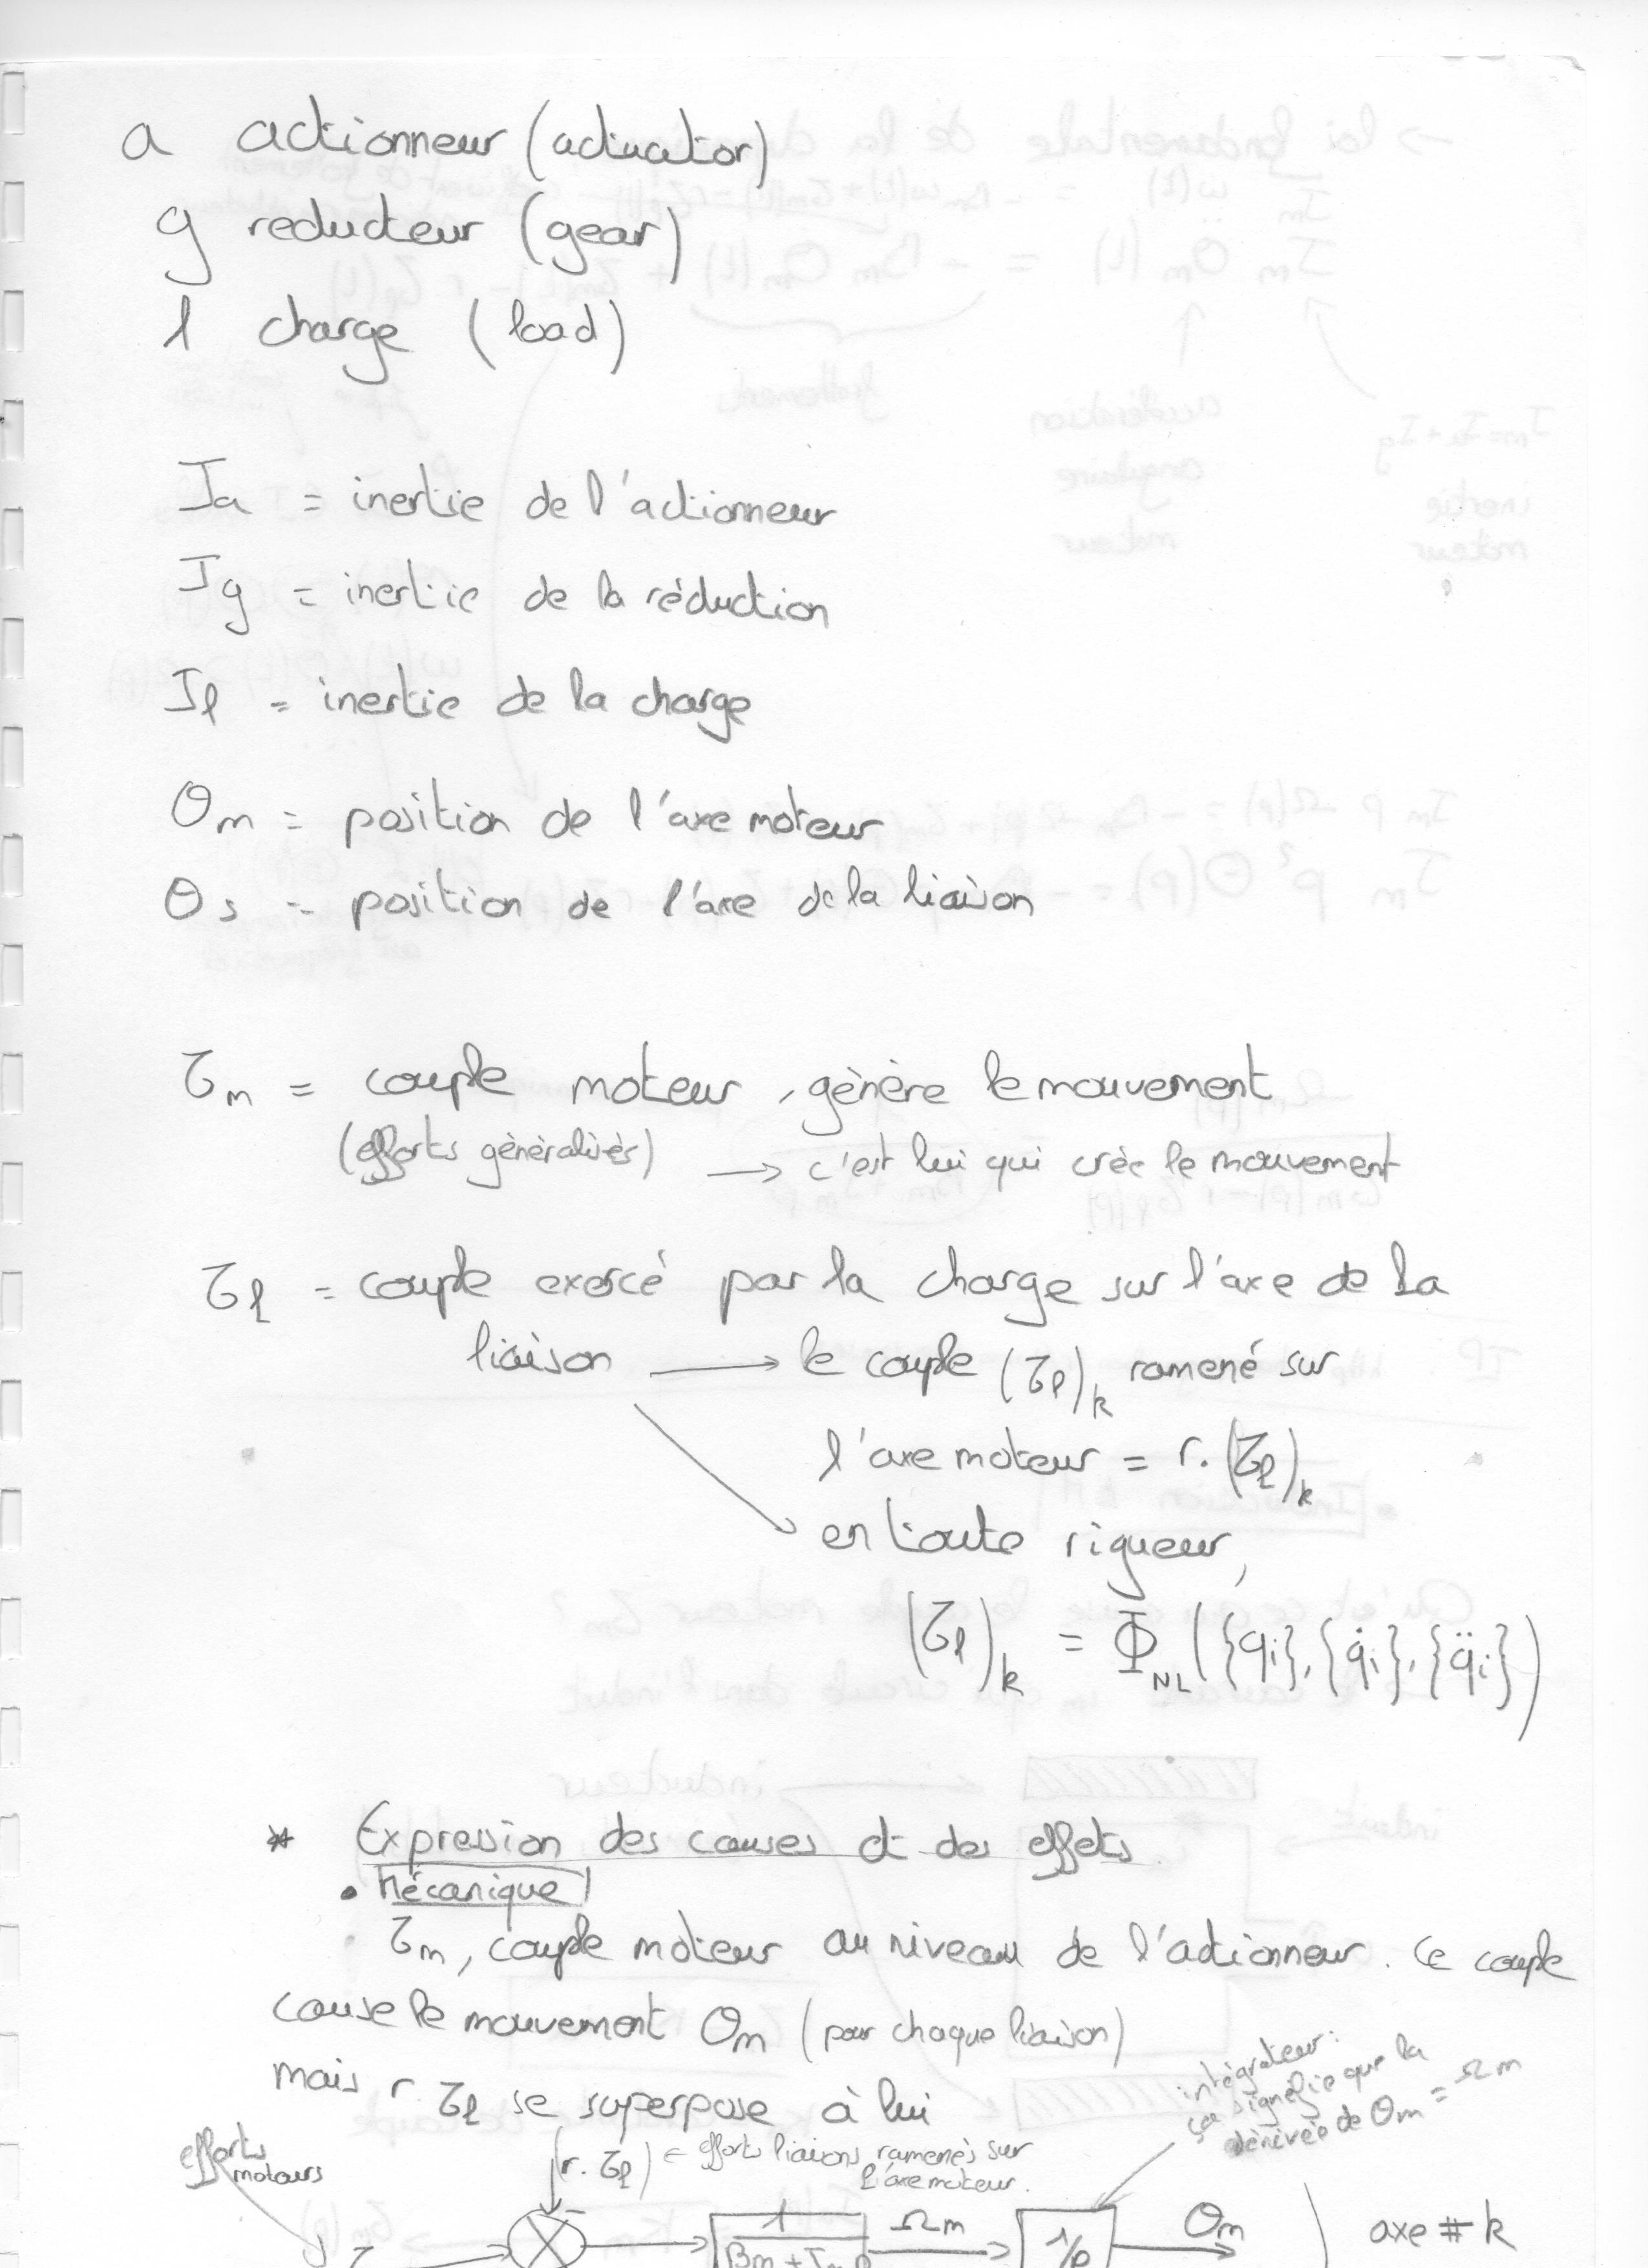 a actionneur (actuator)
g reducteur (gear)
l charge (load)
Ja = inertie de l'actionneur
Jg = inertie de la réduction
Jl = inertie de la charge
θm = position de l'axe moteur
θs = position de l'axe de la liaison
τm = couple moteur, génère le mouvement
(efforts généralisés) → c'est lui qui crée le mouvement
τl = couple exercé par la charge sur l'axe de la
liaison → le couple (τl)k ramené sur
l'axe moteur = r.(τl)k
en toute rigueur,
(τl)k = ΦNL({qi}, {q̇i}, {q̈i})
* Expression des causes et des effets
• Mécanique
τm, couple moteur au niveau de l'actionneur. Ce couple
cause le mouvement θm (pour chaque liaison)
mais r.τl se superpose à lui
intégrateur:
ça signifie que la
dérivée de θm = Ωm
efforts
moteurs
(r.τl) = efforts liaisons ramenés sur
l'axe moteur.
1
Bm + Jm p
Ωm
1/p
θm
axe # k